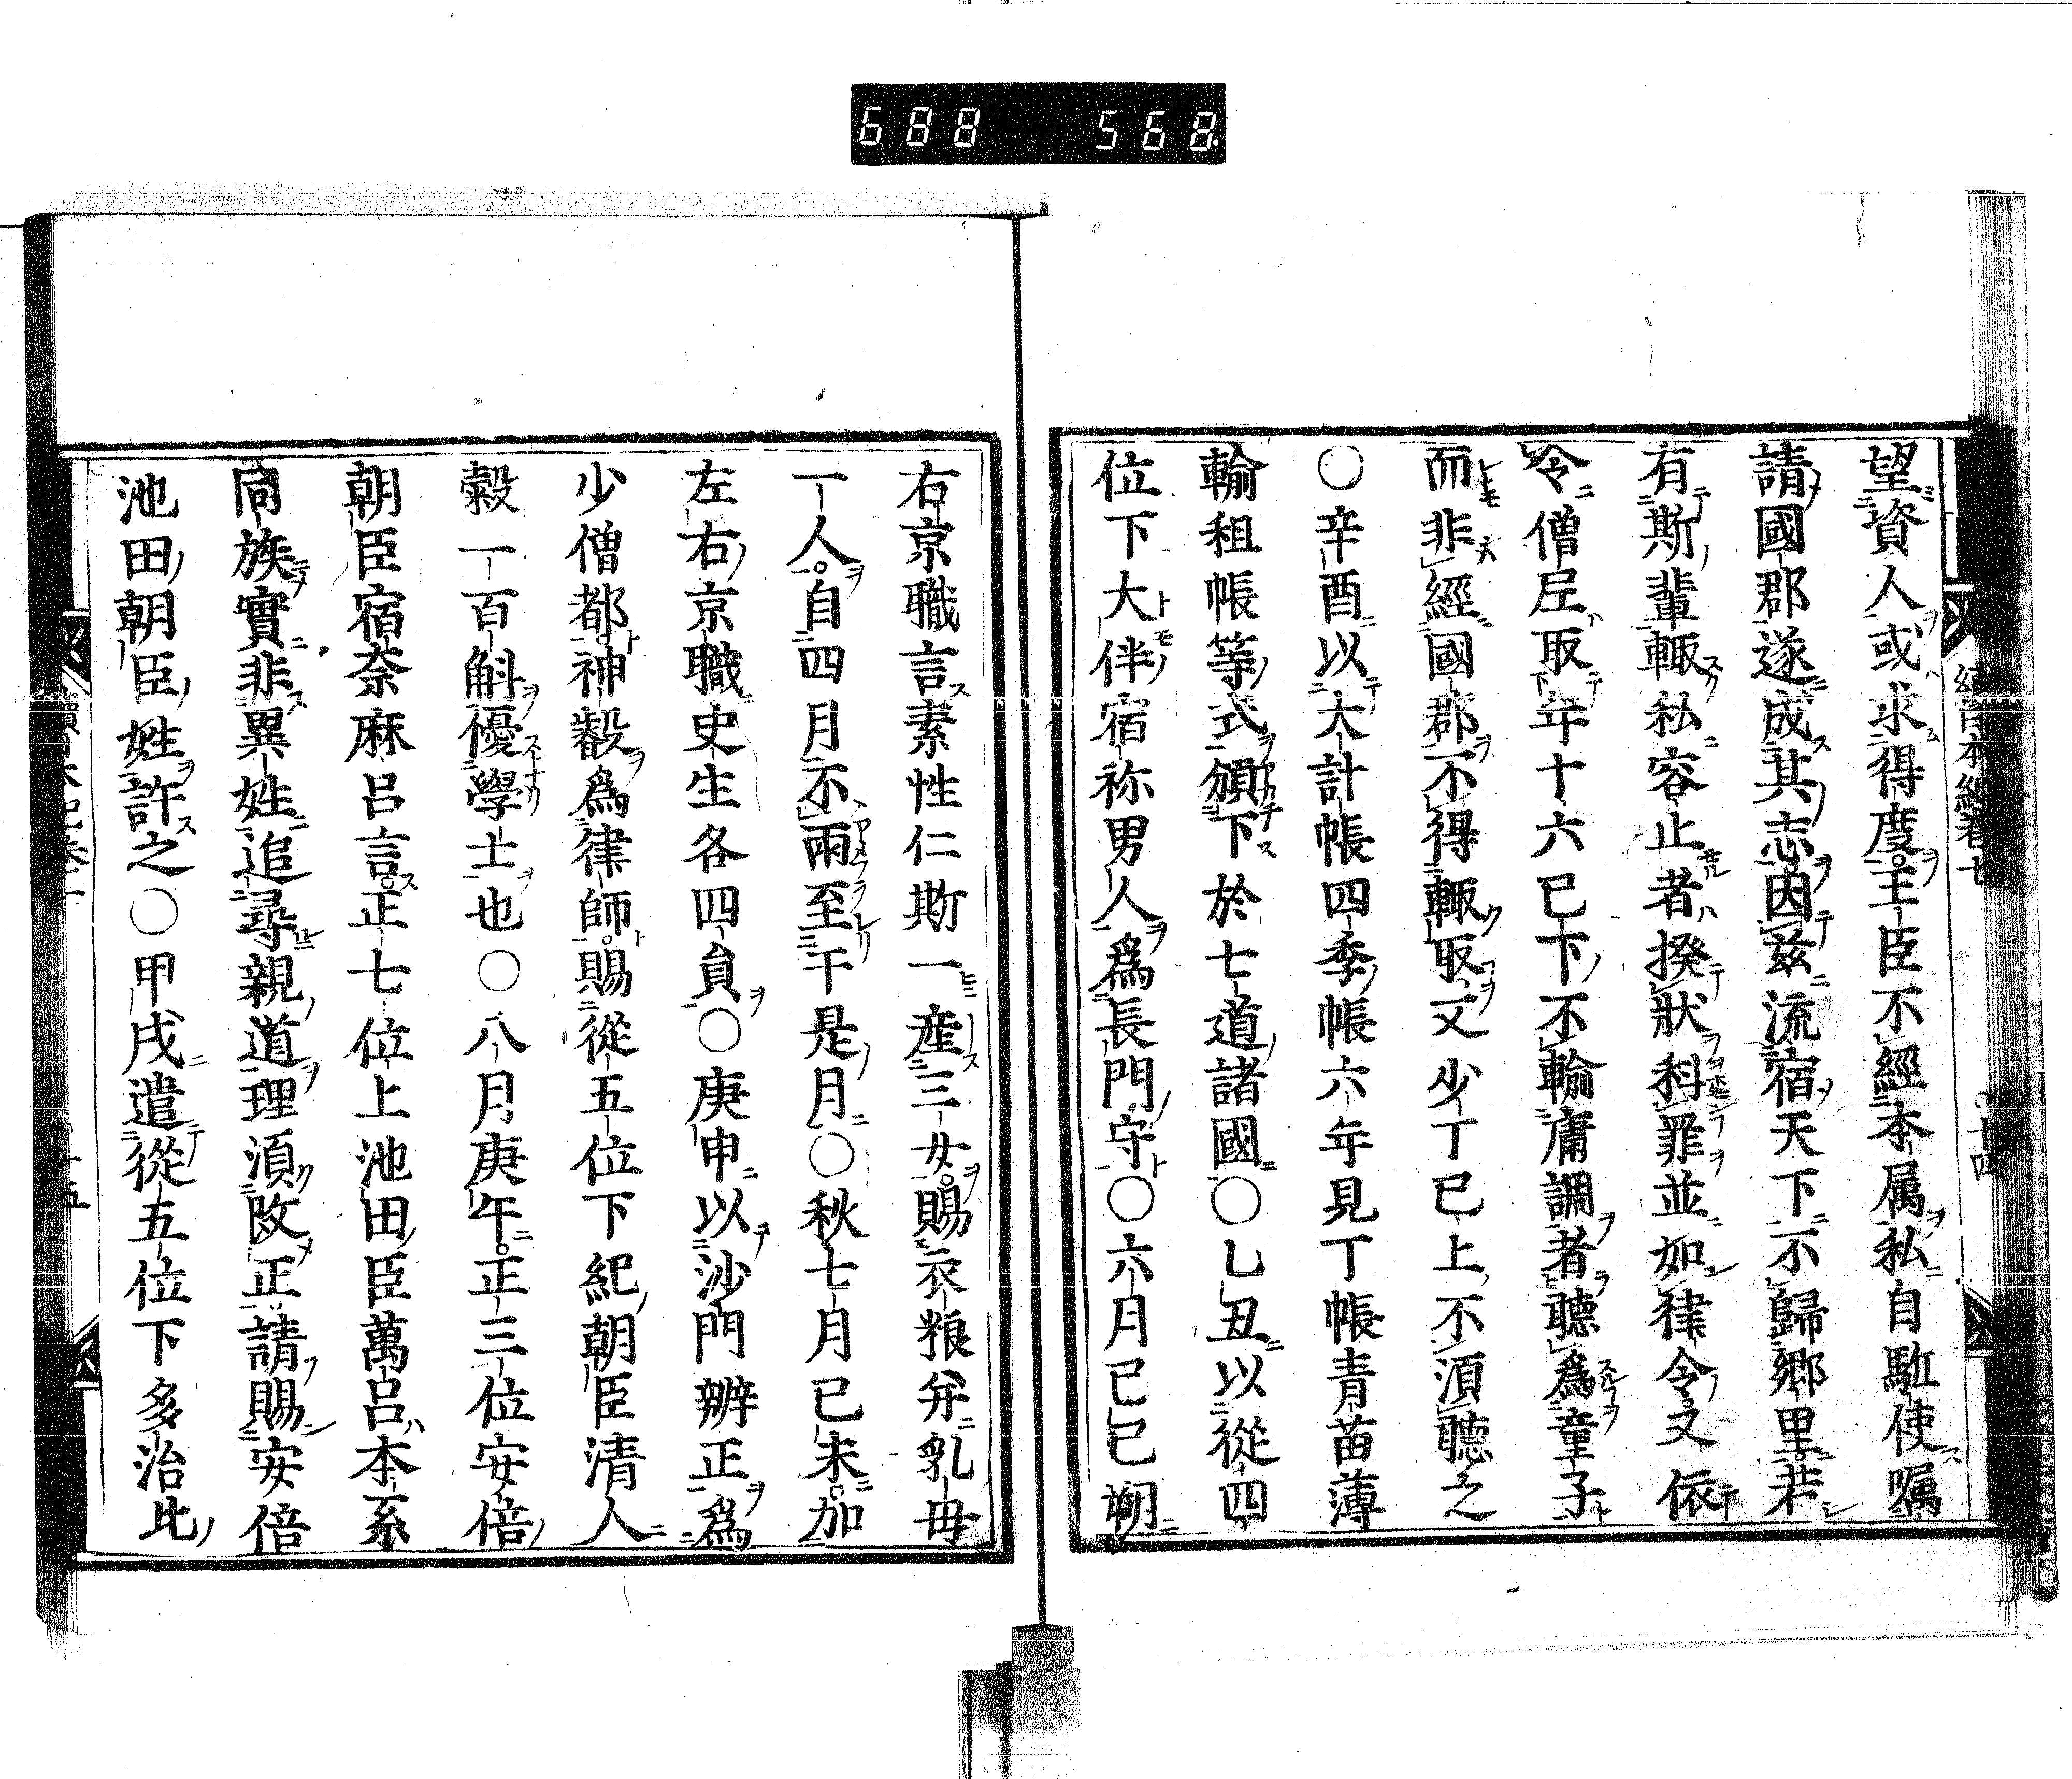 688 568
續日本紀卷七 〇十四
望資人或求得度王臣不經本属私自駈使嘱
請國郡遂成其志因茲流宿天下不歸郷里若
有斯輩輙私容止者揆狀科罪並如律令又依
令僧尼取年十六已下不輸庸調者聽爲童子
而非經國郡不得輙取又少丁已上不湏聽之
〇辛酉以大計帳四季帳六年見丁帳青苗薄
輸租帳等式頒下於七道諸國〇乙丑以從四
位下大伴宿祢男人爲長門守〇六月己巳朔
右京職言素性仁斯一産三女賜衣粮并乳母
一人自四月不雨至于是月〇秋七月己未加
左右京職史生各四負〇庚申以沙門辨正爲
少僧都神叡爲律師賜從五位下紀朝臣清人
穀一百斛優學士也〇八月庚午正三位安倍
朝臣宿奈麻呂言正七位上池田臣萬呂本系
同族實非異姓追尋親道理湏改正請賜安倍
池田朝臣姓許之〇甲戌遣從五位下多治比